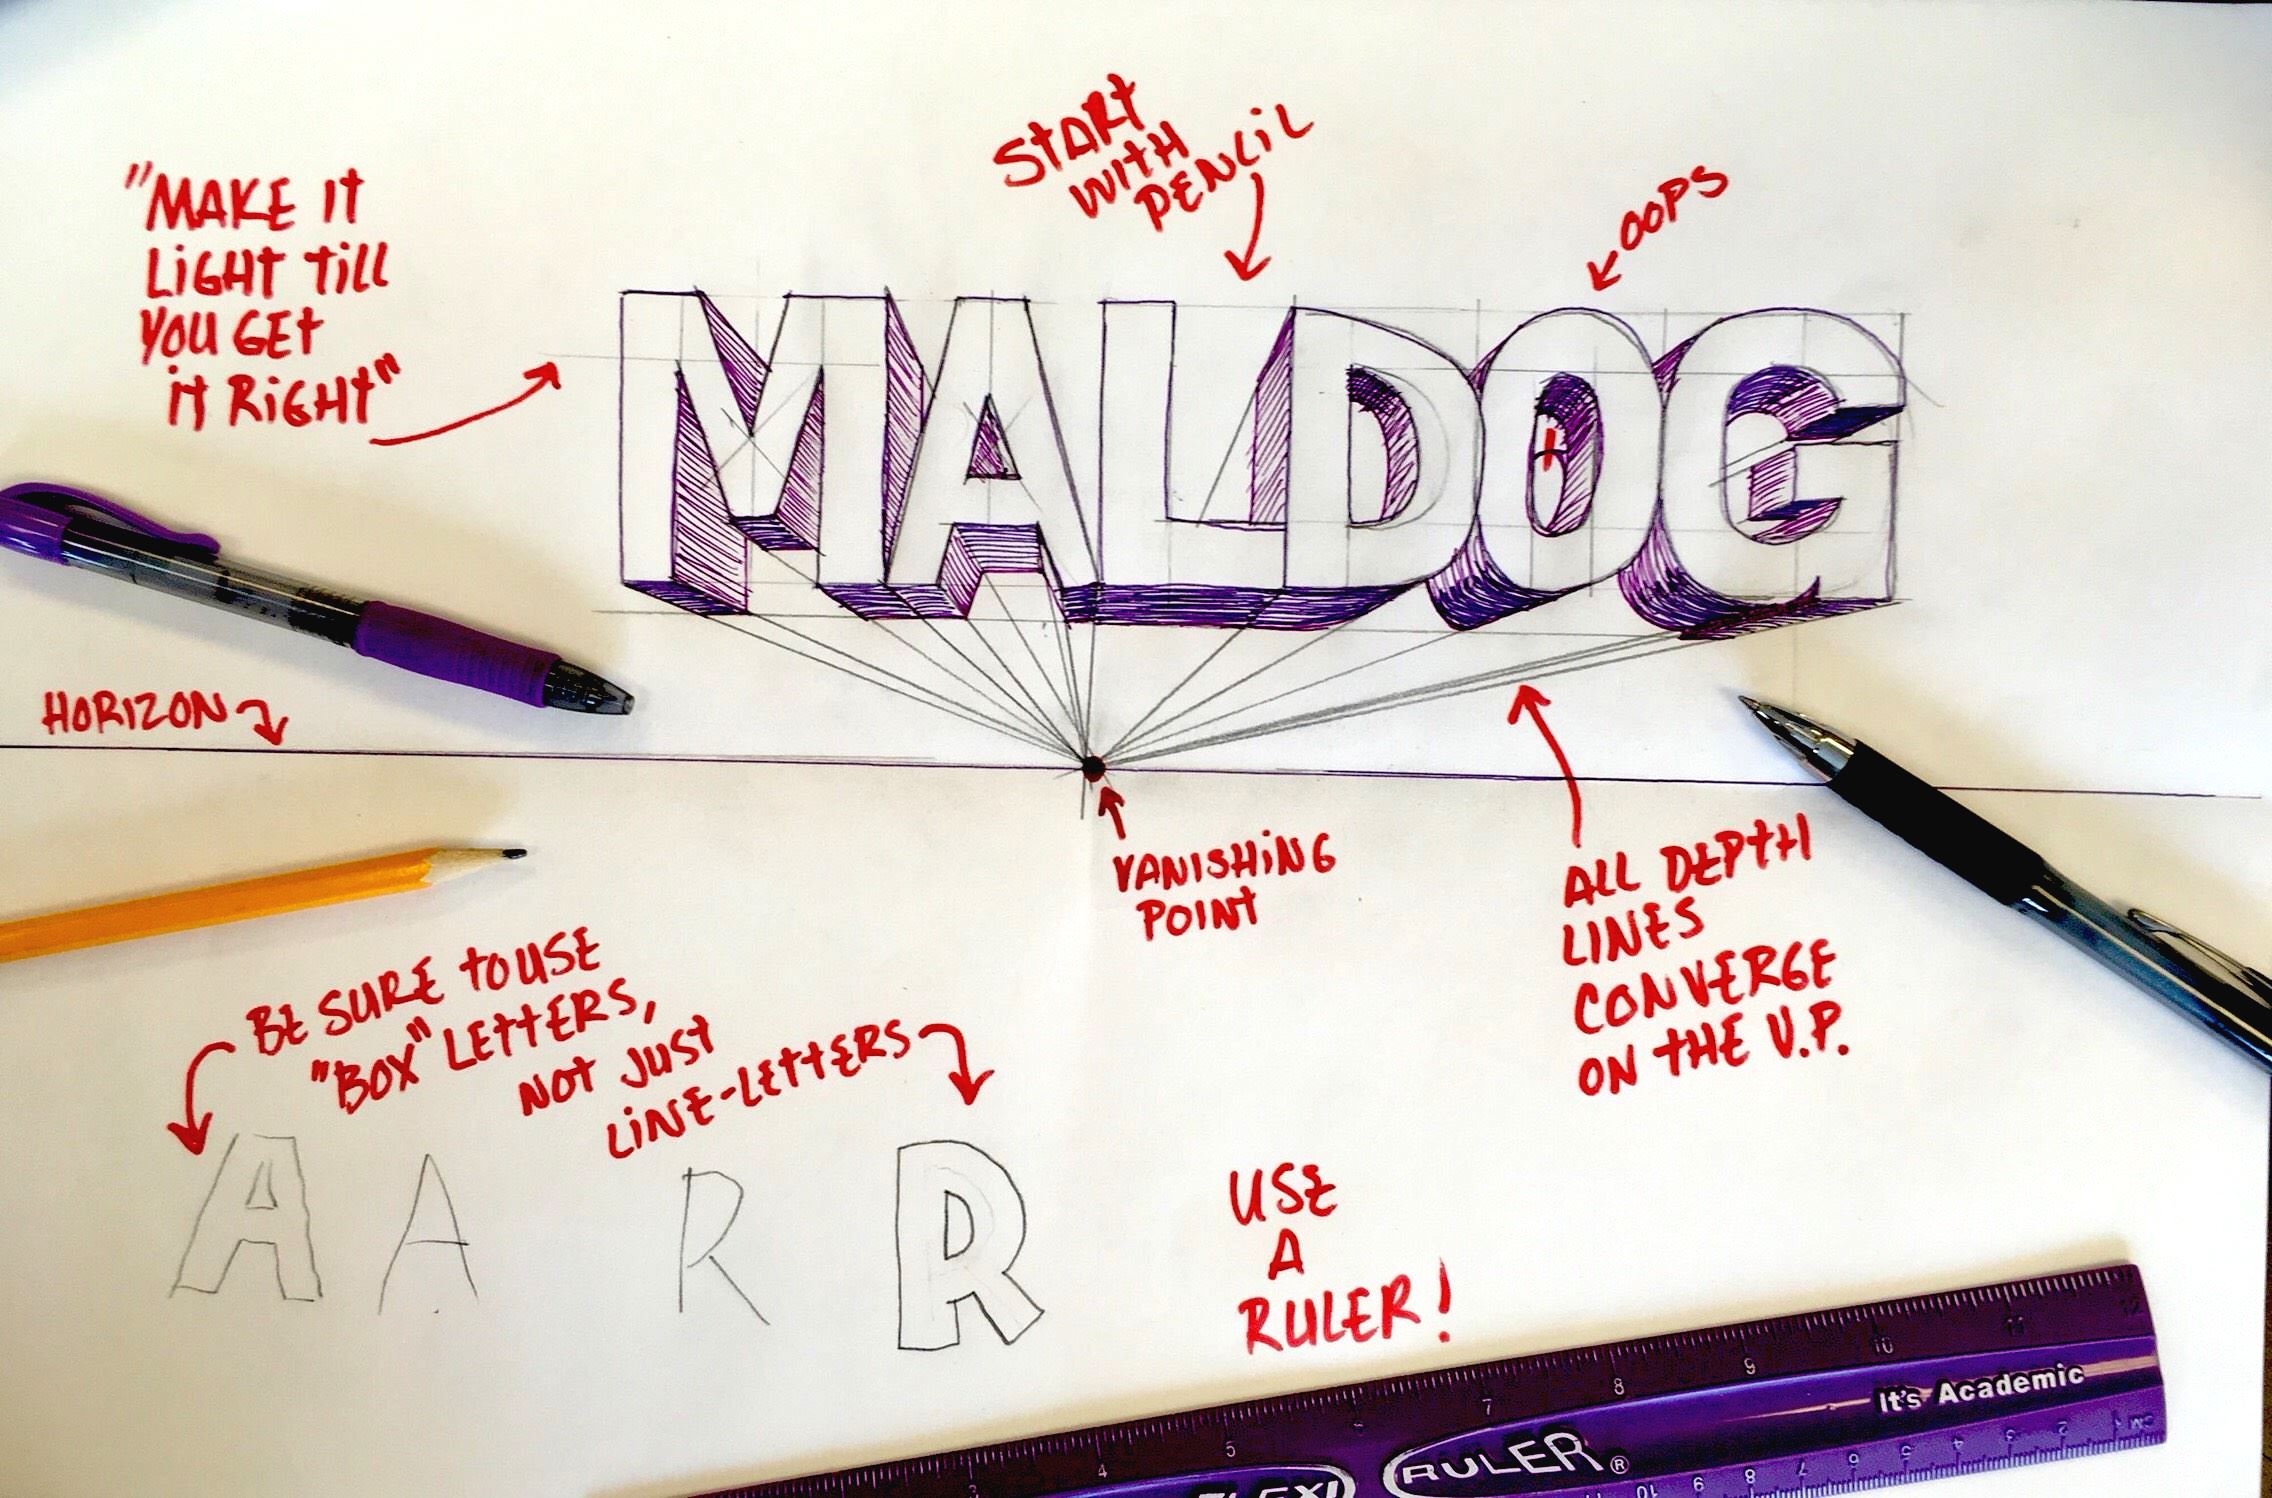 START
WITH
PENCIL
OOPS
"MAKE IT
LIGHT TILL
YOU GET
IT RIGHT"
MALDOG
HORIZON
VANISHING
POINT
ALL DEPTH
LINES
CONVERGE
ON THE V.P.
BE SURE TO USE
"BOX" LETTERS,
NOT JUST
LINE-LETTERS
A A R R
USE
A
RULER!
3 4 5 6 7 8 9 10 11 12
It's Academic
FLEXI RULER®
10 9 8 7 6 5 4 3 2 1 CM